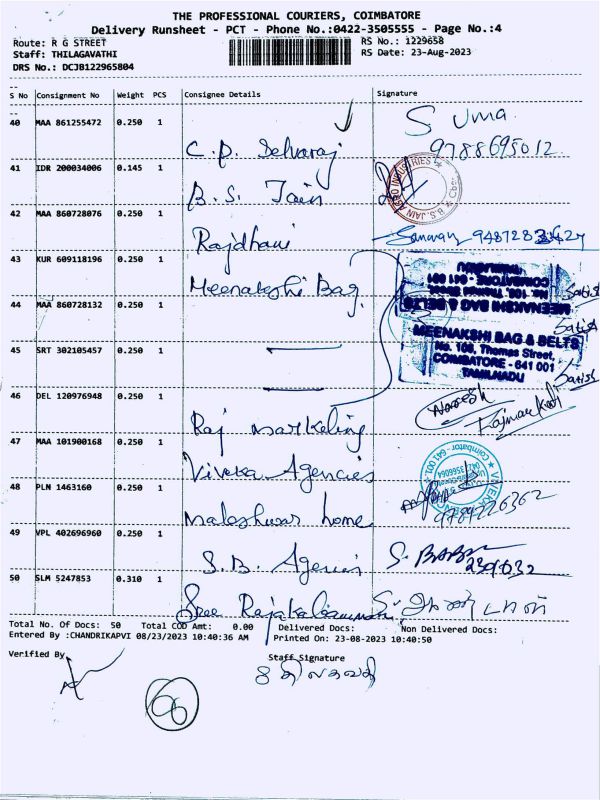 THE PROFESSIONAL COURIERS, COIMBATORE
Delivery Runsheet - PCT - Phone No.:0422-3505555 - Page No.:4
Route: R G STREET RS No.: 1229658
Staff: THILAGAVATHI RS Date: 23-Aug-2023
DRS No.: DCJB122965804
S No Consignment No Weight PCS Consignee Details Signature
40 MAA 861255472 0.250 1 C. P. Selvaraj S Uma
9788695012
41 IDR 200034006 0.145 1 B. S. Jain
B.S. JAIN AGRO INDUSTRIES
42 MAA 860728076 0.250 1 Rajdhani
43 KUR 609118196 0.250 1 Meenakshi Bag
44 MAA 860728132 0.250 1
MEENAKSHI BAG & BELTS
No. 108, Thomas Street,
COIMBATORE - 641 001
TAMILNADU
Satish
Satish
MEENAKSHI BAG & BELTS
No. 108, Thomas Street,
COIMBATORE - 641 001
TAMILNADU
Satish
45 SRT 302105457 0.250 1
46 DEL 120976948 0.250 1 Raj Marketing Naresh
47 MAA 101900168 0.250 1 Viveka Agencies
48 PLN 1463160 0.250 1 Maleshwar home 9789226362
49 VPL 402696960 0.250 1 S. B. Agencies S. BABU
50 SLM 5247853 0.310 1 Sree
Total No. Of Docs: 50 Total COD Amt: 0.00 Delivered Docs: Non Delivered Docs:
Entered By :CHANDRIKAPVI 08/23/2023 10:40:36 AM Printed On: 23-08-2023 10:40:50
Verified By Staff Signature
திலகவதி
66